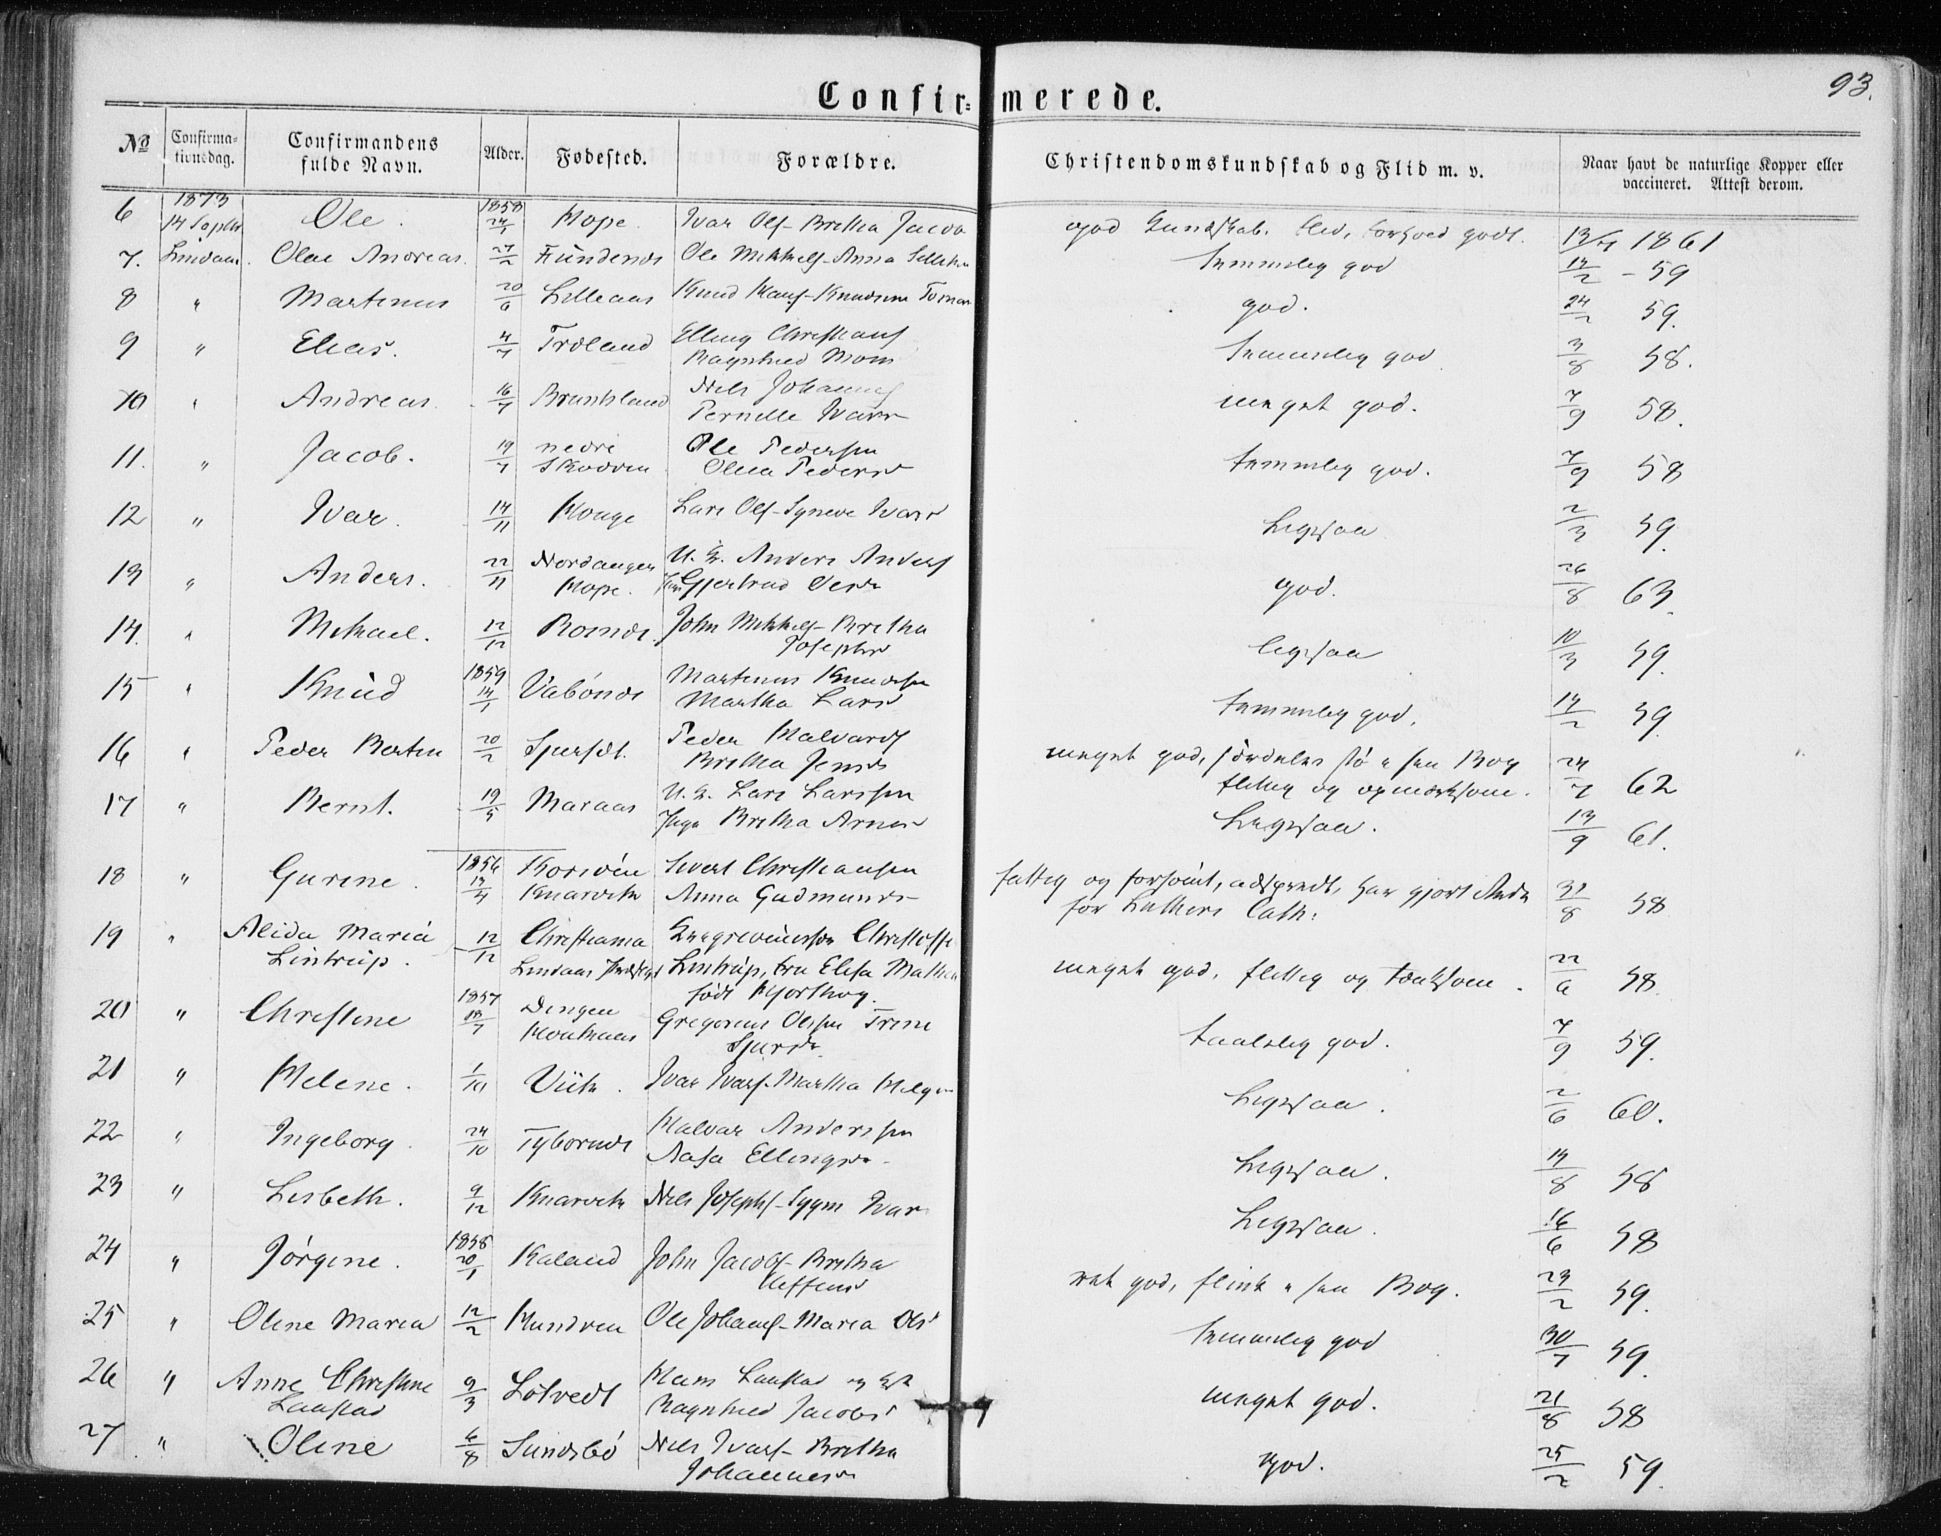 93.
Confir= merede.
No Confirma-tionsdag. Confirmandens fulde Navn. Alder. Fødested. Forældre. Christendomskundskab og Flid m. v. Naar havt de naturlige Kopper eller vaccineret. Attest derom.
6 1873 14 Septbr Ole. 1858 24/1 Hope Ivar Ols- Brita Jacob god Kundskab. Flid, forhold godt. 1861
7. Lindaas. Olai Andreas 27/2 Fundenæs Ole Mikkels- Anna temmelig god 14/2 - 59
8 " Martinus 20/6 Lilleaas Knud Hans- Knudsine god. 24/2 59.
9 " Elias. 4/7 Troland Elling Christians
Ragnhild Mons temmelig god 3/8 58.
10 " Andreas 16/7 Bruntland Nils Johannes
Pernille Ivars meget god. 7/9 58.
11. " Jacob. 19/7 nedre Skodven Ole Pedersen
Olina Pedersd temmelig god. 7/9 58
12 " Ivar. 14/11 Houge Lars Ols- Synneve Ivarsd Ligesaa 2/3 59.
13 " Anders. 22/11 Nordanger Hope. U. Æ. Anders Anders
Gjertrud Olsdr god. 26/8 63.
14. " Mikael. 12/12 Romdr. John Mikkels- Britha
Josephsd ligesaa 10/3 59.
15 " Knud 1859 14/1 Vabönæs Martinus Knudsen
Martha Larsd temmelig god. 14/2 59.
16 " Peder Bertin 20/2 Spursdt. Peder Halvards
Britha Jensdr meget god, særdeles fiø i sin Bog
flittig og opmærksom. 24/7 62
17 " Bernt. 19/5 Maraas U. Æ. Lars Larssen
Pige Britha Arnesd Ligesaa. 13/9 61.
18 " Gurine. 1856 13/4 Korsöen Knarvik Sivert Christiansen
Anna Gudmundsd fattig og forsömt, adspredt, har gjort Rede
for Luthers Cath: 31/8 58
19 " Alida Maria
Lintrup. 12/12 Christiania
Lindaas Præstegd Sorenskriver Christoffer
Lintrup, Fru Elisa Mathea
født Hjorthøy. meget god, flittig og tænksom. 22/6 58.
20 " Christine 1857 18/7 Dingen Houkaas Gregorius Olssen Trine
Sjursdr. taalelig god. 7/9 59.
21 " Helene. 1/10 Viik. Ivar Ivars- Martha Helge Ligesaa. 2/6 60.
22 " Ingeborg. 24/10 Tybornæs Halvar Anderssen
Aasa Ellingsdr Ligesaa. 14/8 58
23 " Lisbeth. 9/12 Knarvik Nils Josephs- Sygni Ivar Ligesaa. 16/6 58
24 " Jørgine. 1858 20/1 Kaland John Jacobs- Britha
Steffensd ret god, flink i sin Bog. 23/2 59.
25 " Oline Maria 12/2 Hundven Ole Johans- Maria Olsd temmelig god 30/7 59.
26 " Anne Christine
Laastad 9/3 Lötvedt Hans Laastad og H.
Ragnhild Jacobsd meget god. 21/8 58
27 " Oline 6/8 Sundsbö Nils Ivars- Britha
Johannesdr god. 25/2 59.